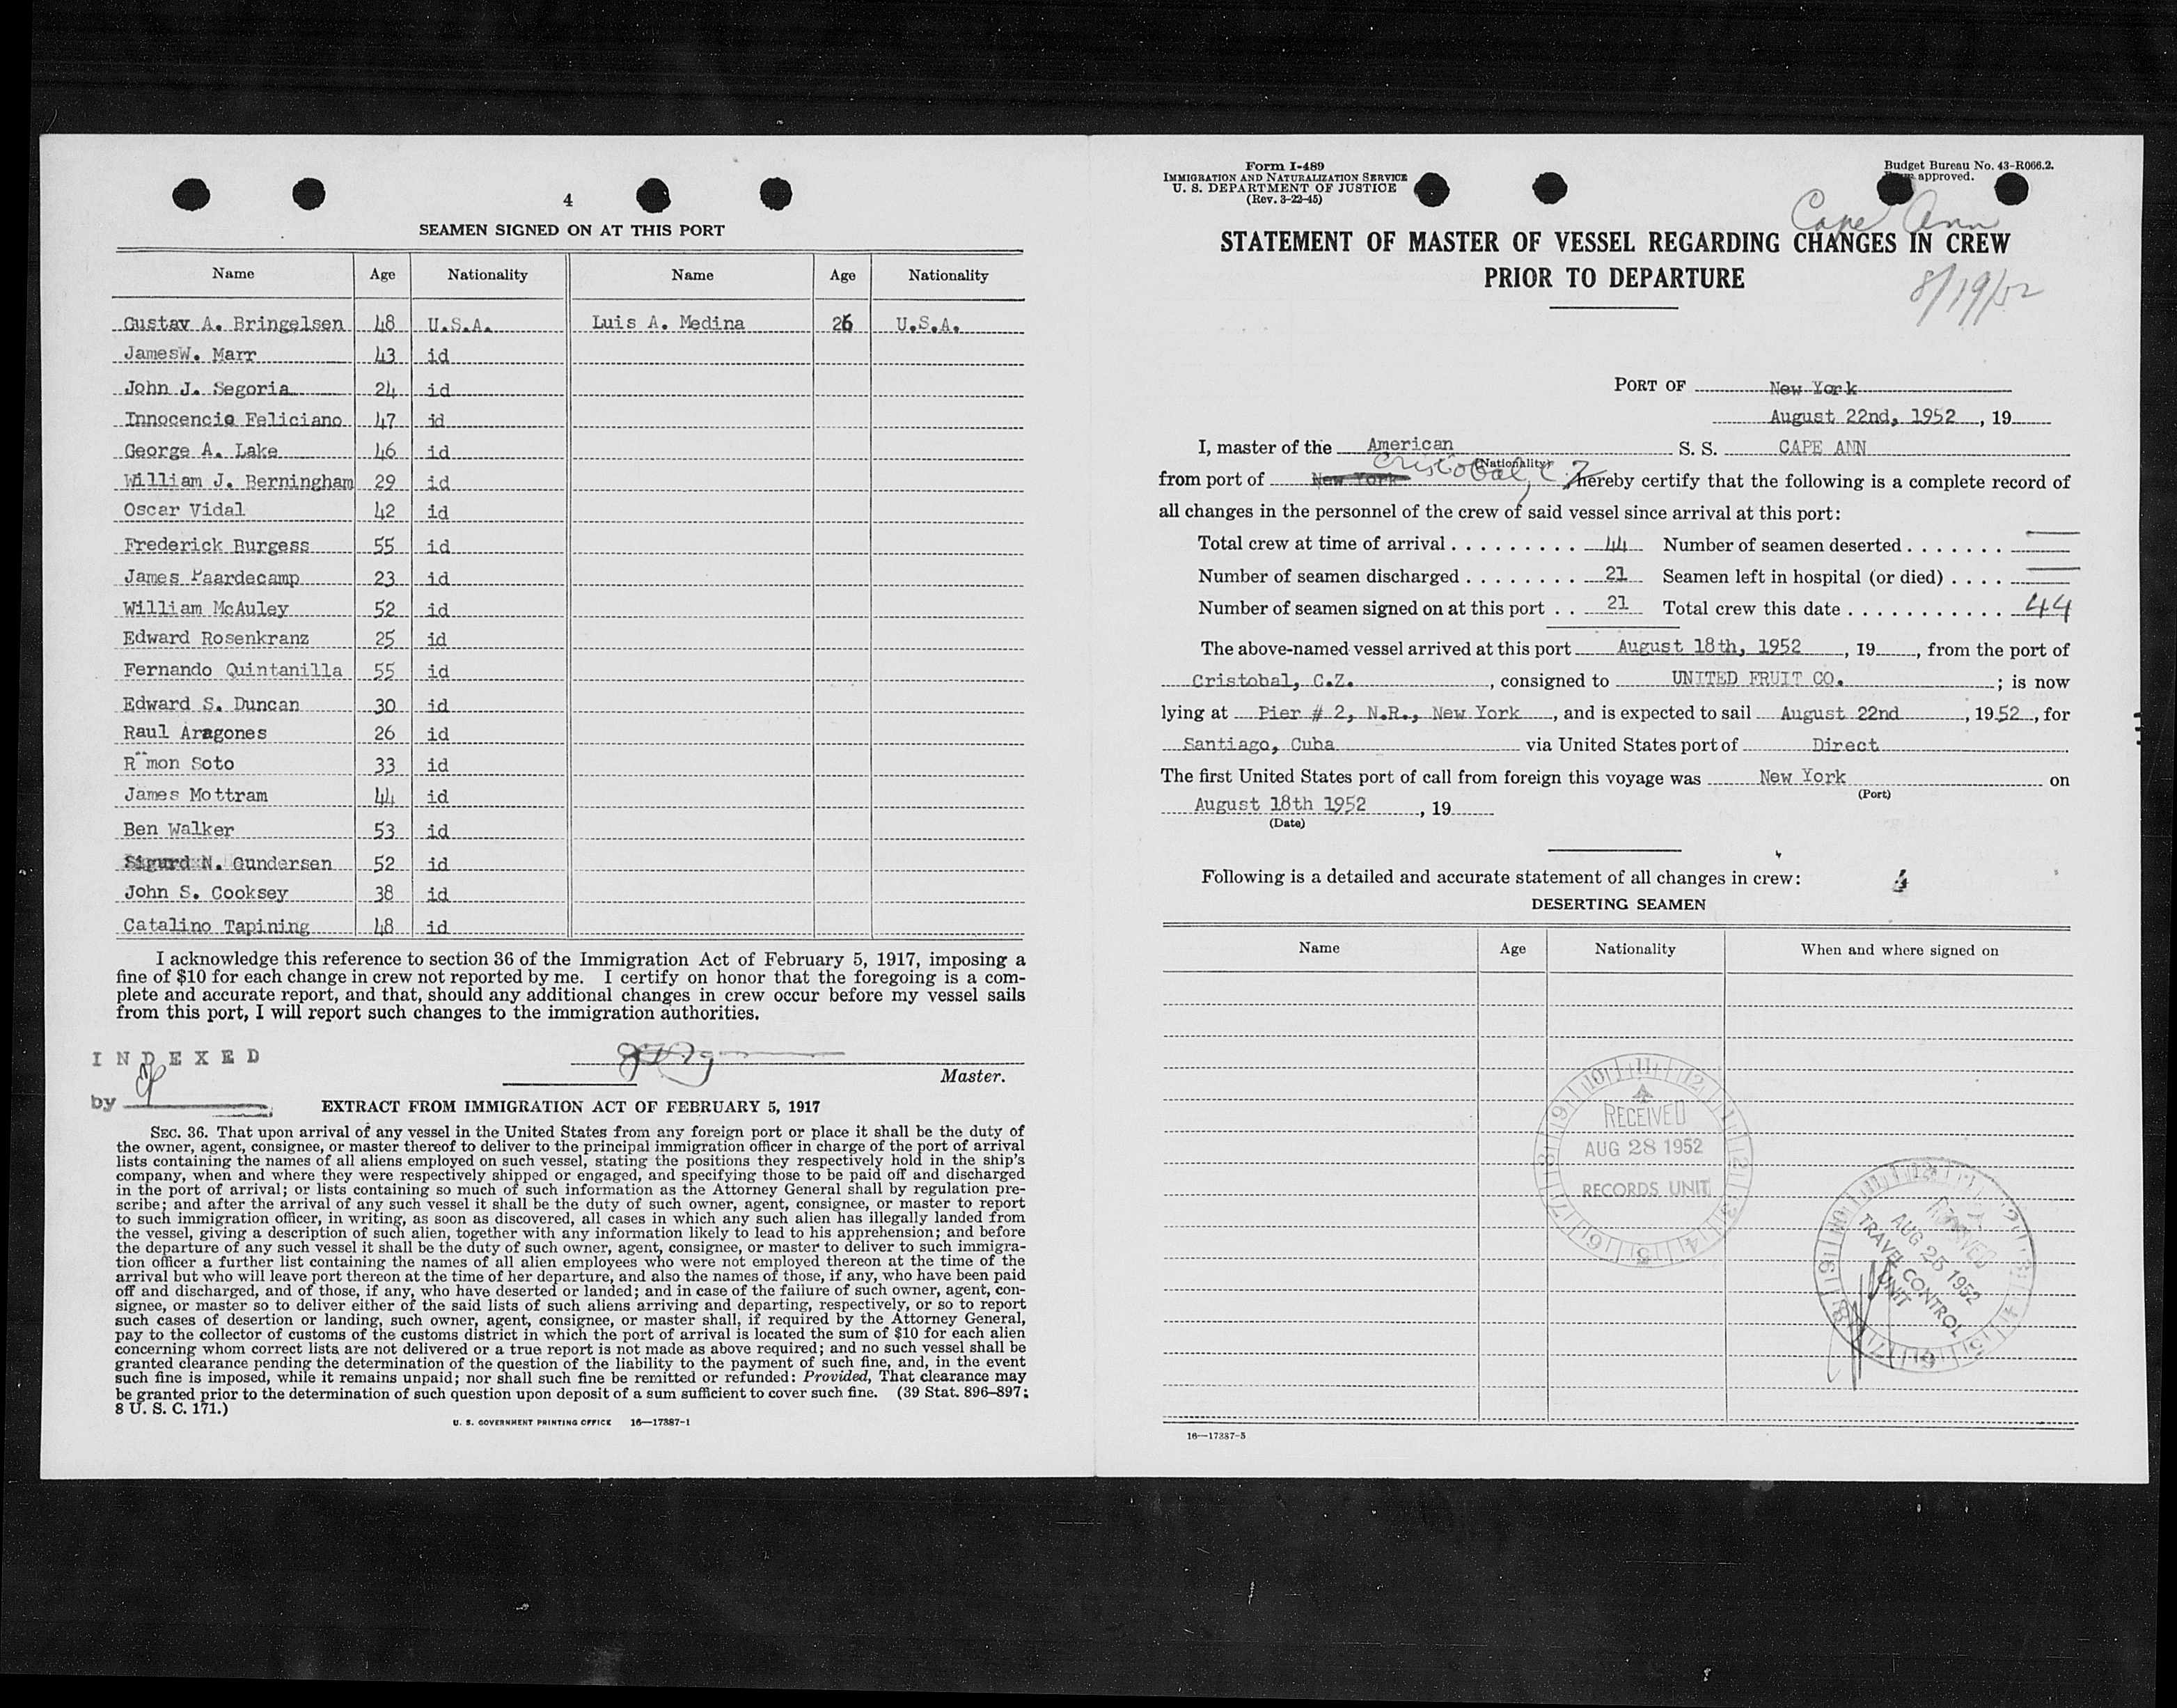 4
SEAMEN SIGNED ON AT THIS PORT
Name Age Nationality Name Age Nationality
Gustav A. Bringelsen 48 U.S.A. Luis A. Medina 26 U.S.A.
JamesW. Marr 43 id
John J. Segoria 24 id
Innocencio Feliciano 47 id
George A. Lake 46 id
William J. Berningham 29 id
Oscar Vidal 42 id
Frederick Burgess 55 id
James Paardecamp 23 id
William McAuley 52 id
Edward Rosenkranz 25 id
Fernando Quintanilla 55 id
Edward S. Duncan 30 id
Raul Aragones 26 id
R mon Soto 33 id
James Mottram 44 id
Ben Walker 53 id
Sigurd N. Gundersen 52 id
John S. Cooksey 38 id
Catalino Tapining 48 id
I acknowledge this reference to section 36 of the Immigration Act of February 5, 1917, imposing a
fine of $10 for each change in crew not reported by me. I certify on honor that the foregoing is a com-
plete and accurate report, and that, should any additional changes in crew occur before my vessel sails
from this port, I will report such changes to the immigration authorities.
INDEXED
Master.
by
EXTRACT FROM IMMIGRATION ACT OF FEBRUARY 5, 1917
SEC. 36. That upon arrival of any vessel in the United States from any foreign port or place it shall be the duty of
the owner, agent, consignee, or master thereof to deliver to the principal immigration officer in charge of the port of arrival
lists containing the names of all aliens employed on such vessel, stating the positions they respectively hold in the ship's
company, when and where they were respectively shipped or engaged, and specifying those to be paid off and discharged
in the port of arrival; or lists containing so much of such information as the Attorney General shall by regulation pre-
scribe; and after the arrival of any such vessel it shall be the duty of such owner, agent, consignee, or master to report
to such immigration officer, in writing, as soon as discovered, all cases in which any such alien has illegally landed from
the vessel, giving a description of such alien, together with any information likely to lead to his apprehension; and before
the departure of any such vessel it shall be the duty of such owner, agent, consignee, or master to deliver to such immigra-
tion officer a further list containing the names of all alien employees who were not employed thereon at the time of the
arrival but who will leave port thereon at the time of her departure, and also the names of those, if any, who have been paid
off and discharged, and of those, if any, who have deserted or landed; and in case of the failure of such owner, agent, con-
signee, or master so to deliver either of the said lists of such aliens arriving and departing, respectively, or so to report
such cases of desertion or landing, such owner, agent, consignee, or master shall, if required by the Attorney General,
pay to the collector of customs of the customs district in which the port of arrival is located the sum of $10 for each alien
concerning whom correct lists are not delivered or a true report is not made as above required; and no such vessel shall be
granted clearance pending the determination of the question of the liability to the payment of such fine, and, in the event
such fine is imposed, while it remains unpaid; nor shall such fine be remitted or refunded: Provided, That clearance may
be granted prior to the determination of such question upon deposit of a sum sufficient to cover such fine. (39 Stat. 896–897;
8 U. S. C. 171.)
U. S. GOVERNMENT PRINTING OFFICE 16—17387-1
Form I-489
IMMIGRATION AND NATURALIZATION SERVICE
U. S. DEPARTMENT OF JUSTICE
(Rev. 3-22-45)
Budget Bureau No. 43-R066.2.
approved.
Cape Ann
STATEMENT OF MASTER OF VESSEL REGARDING CHANGES IN CREW
PRIOR TO DEPARTURE
8/19/52
PORT OF New York
August 22nd, 1952, 19
I, master of the American S. S. CAPE ANN
(Nationality)
from port of New York Cristobal, C Z hereby certify that the following is a complete record of
all changes in the personnel of the crew of said vessel since arrival at this port:
Total crew at time of arrival 44 Number of seamen deserted
Number of seamen discharged 21 Seamen left in hospital (or died)
Number of seamen signed on at this port 21 Total crew this date 44
The above-named vessel arrived at this port August 18th, 1952, 19, from the port of
Cristobal, C.Z., consigned to UNITED FRUIT CO.; is now
lying at Pier # 2, N.R., New York, and is expected to sail August 22nd, 1952, for
Santiago, Cuba via United States port of Direct
The first United States port of call from foreign this voyage was New York on
(Port)
August 18th 1952, 19
(Date)
Following is a detailed and accurate statement of all changes in crew: 4
DESERTING SEAMEN
Name Age Nationality When and where signed on
RECEIVED
AUG 28 1952
RECORDS UNIT
RECEIVED
AUG 25 1952
TRAVEL CONTROL
UNIT
16—17387-5